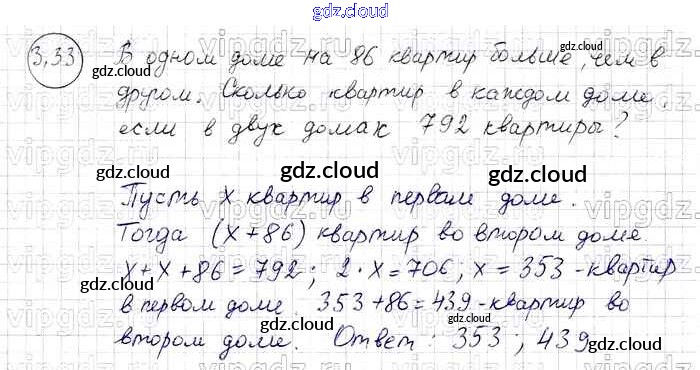 gdz.cloud
3.33 В одном доме на 86 квартир больше, чем в
другом. Сколько квартир в каждом доме,
если в двух домах 792 квартиры?
Пусть x квартир в первом доме.
Тогда (x+86) квартир во втором доме.
x+x+86=792; 2·x=706; x=353 - квартир
в первом доме. 353+86=439 - квартир во
втором доме. Ответ: 353; 439
gdz.cloud
gdz.cloud
gdz.cloud
gdz.cloud
gdz.cloud
gdz.cloud
gdz.cloud
gdz.cloud
gdz.cloud
gdz.cloud
gdz.cloud